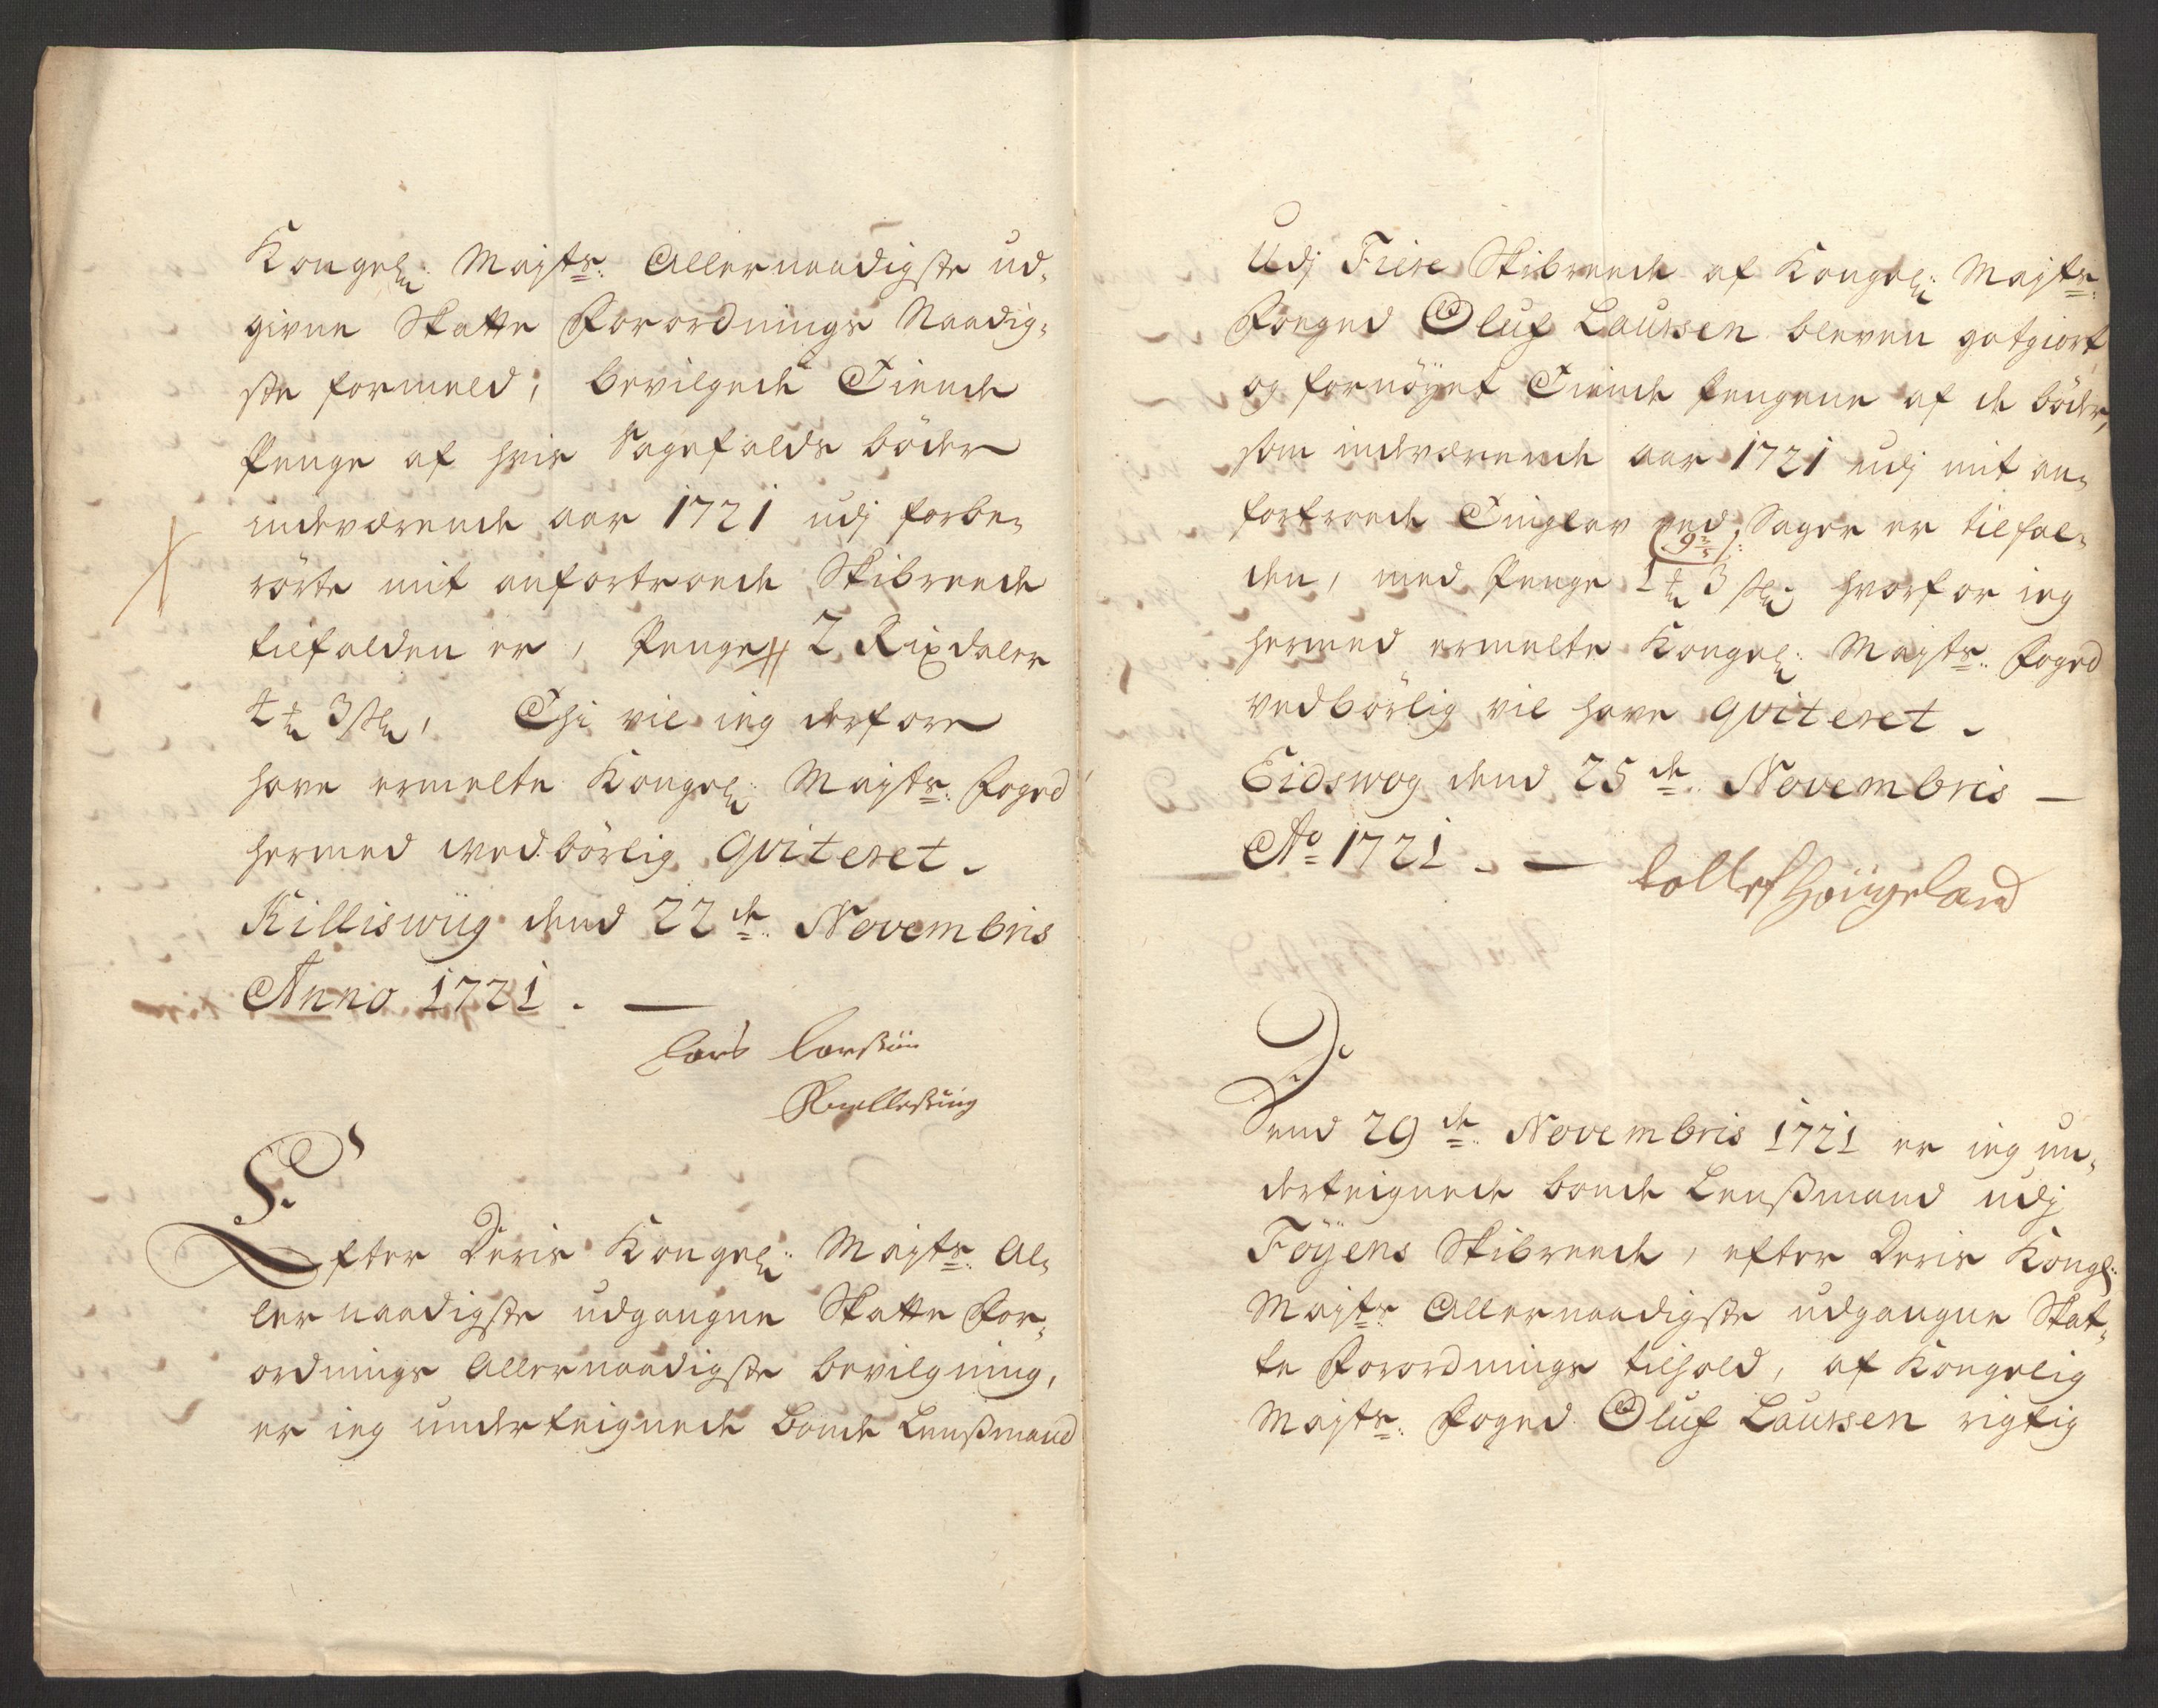 Kongel: Maÿts: Allernaadigste ud-
givne Skatte Forordnings Naadig-
ste formeld, bevilgede Tiende
Penge af hvis Sagefalds bøder
indeværende aar 1721 udj forbe-
rørte mit anfortroede Skibreede
tilfalden er, Penge 2 Rixdaler
3
Thi vil ieg derfore
have ermelte Kongel: Maÿts: Foged
hermed wedbørlig qviteret.
Killiswiig dend 22de Novembris
Anno 1721. —
Lars Larsøn

Efter Deris Kongel: Maÿts: Al-
lernaadigste udgangne Skatte For-
ordnings Allernaadigste bevilgning,
er ieg underteignede Bonde Lensßmand
Udj Fiere Skibreede af Kongel: Maÿts:
Foeged Oluf Laursen bleven gotgiort
og fornøÿet Tiende Pengene af de bøder,
som indeværende aar 1721 udj mit an-
fortroede Tinglav ved Sager er tilfal-
den, med Penge 1 3 hvorfor ieg
hermed ermelte Kongel: Maÿts: Foged
vedbørlig vil have qviteret.
Eidswog dend 25de Novembris —
Ao 1721. —
Tollef Høugeland
Dend 29de Novembris 1721 er ieg un-
derteignede bonde Lensßmand udj
Föÿens Skibreede, efter Deris Kongl:
Maÿts: Allernaadigste udgangne Skat-
te Forordnings tilhold, af Kongelig
Maÿts: Foged Oluf Laursen rigtig